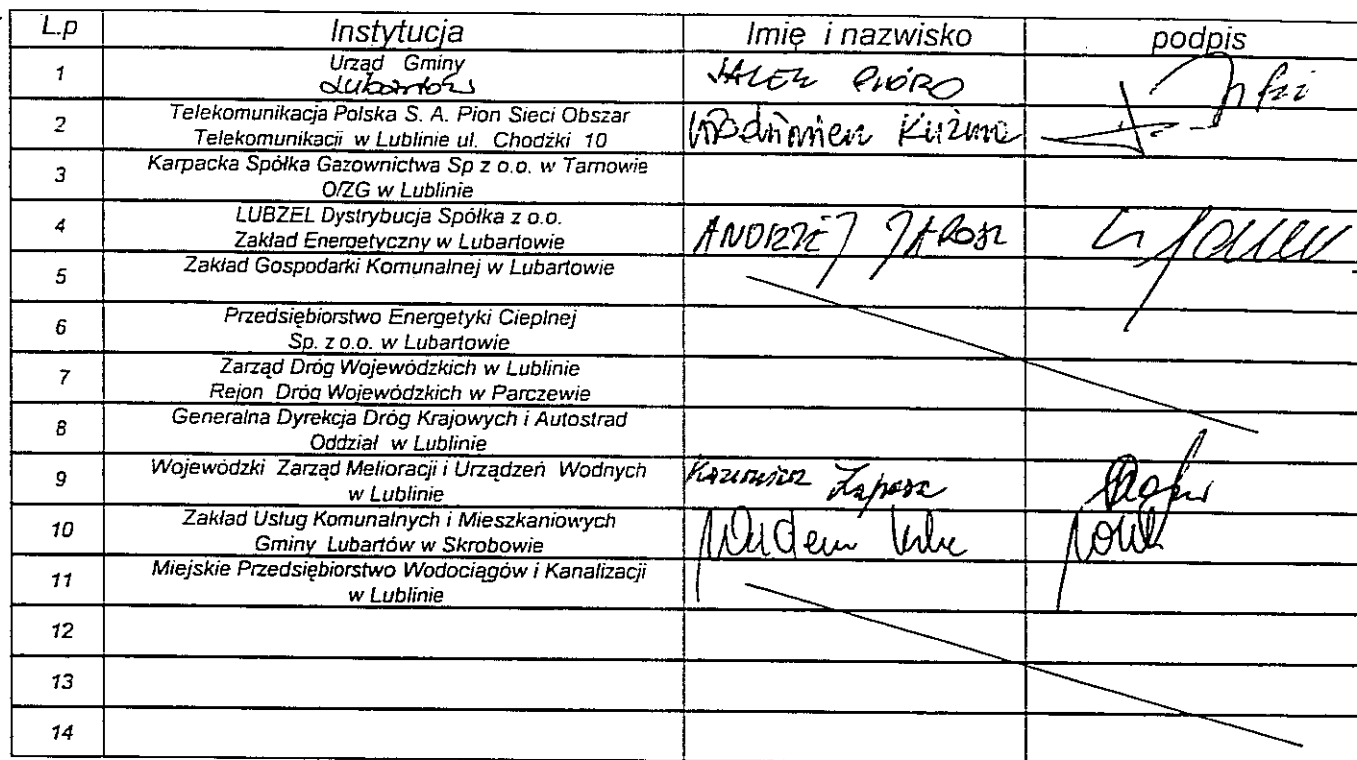 L.p Instytucja Imię i nazwisko podpis
1 Urząd Gminy
Lubartów JACEK PIÓRO
2 Telekomunikacja Polska S. A. Pion Sieci Obszar
Telekomunikacji w Lublinie ul. Chodźki 10 Włodzimierz Kuźma
3 Karpacka Spółka Gazownictwa Sp z o.o. w Tarnowie
O/ZG w Lublinie
4 LUBZEL Dystrybucja Spółka z o.o.
Zakład Energetyczny w Lubartowie ANDRZEJ JAROSZ
5 Zakład Gospodarki Komunalnej w Lubartowie
6 Przedsiębiorstwo Energetyki Cieplnej
Sp. z o.o. w Lubartowie
7 Zarząd Dróg Wojewódzkich w Lublinie
Rejon Dróg Wojewódzkich w Parczewie
8 Generalna Dyrekcja Dróg Krajowych i Autostrad
Oddział w Lublinie
9 Wojewódzki Zarząd Melioracji i Urządzeń Wodnych
w Lublinie Kazimierz
10 Zakład Usług Komunalnych i Mieszkaniowych
Gminy Lubartów w Skrobowie
11 Miejskie Przedsiębiorstwo Wodociągów i Kanalizacji
w Lublinie
12
13
14